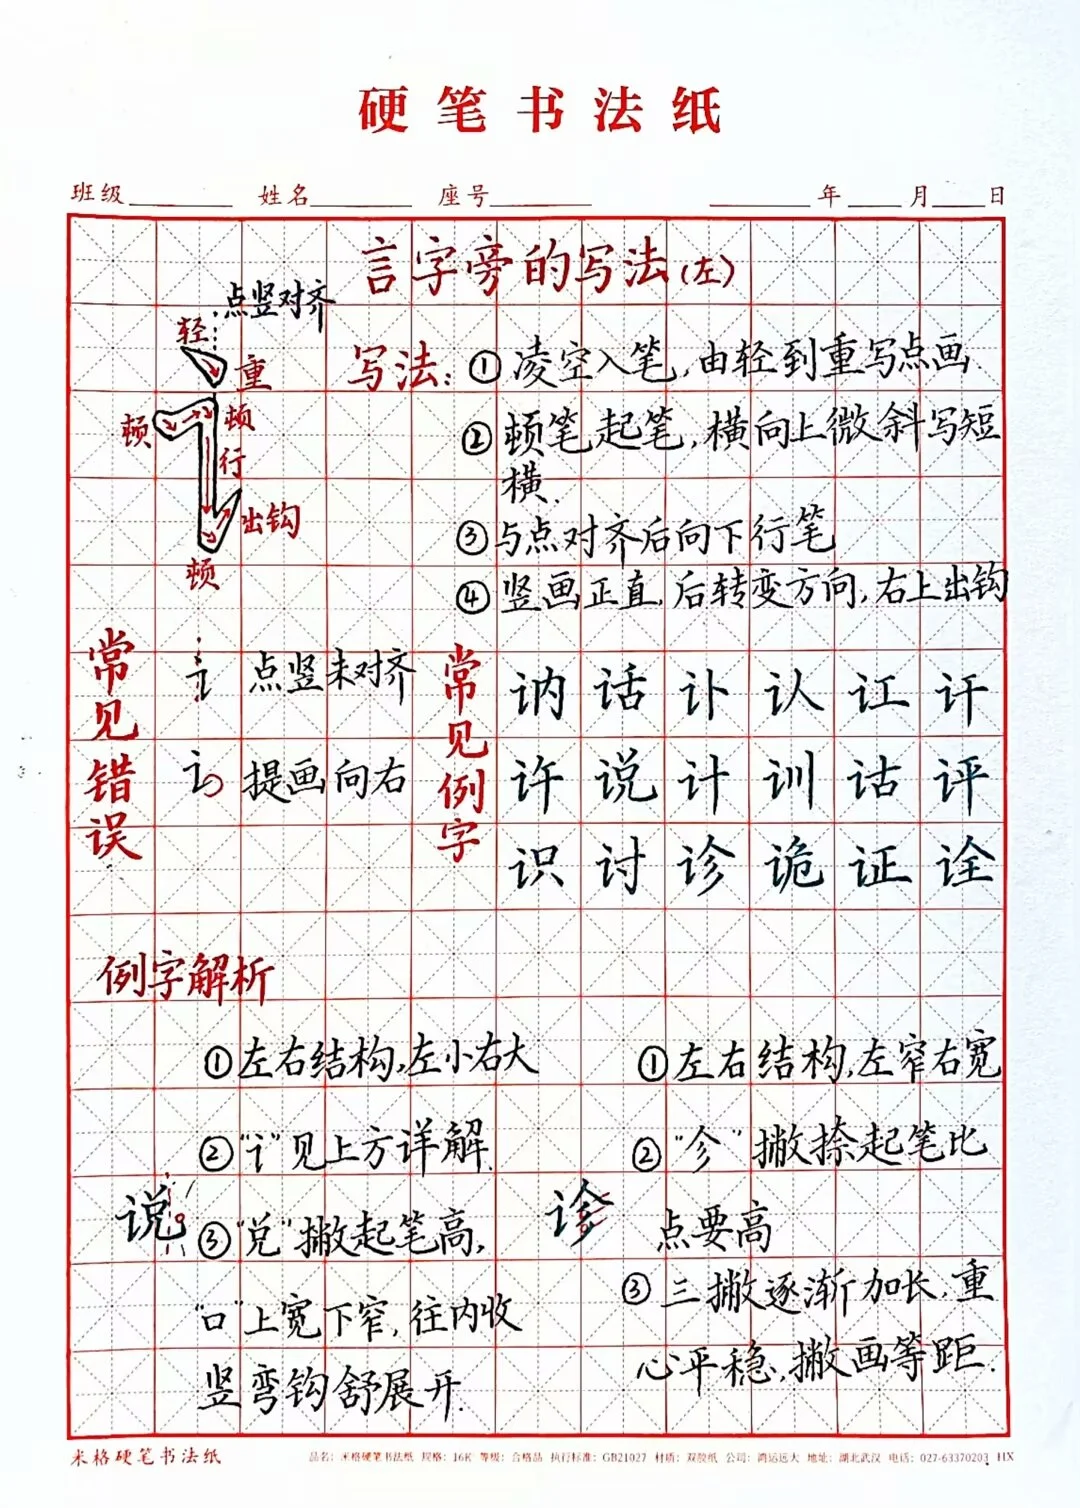 硬笔书法纸
班级 姓名 座号 年 月 日
言字旁的写法(左)
点竖对齐
轻
重
顿 顿
行
出钩
顿
写法:①凌空入笔,由轻到重写点画.
②顿笔,起笔,横向上微斜写短
横.
③与点对齐后向下行笔
④竖画正直,后转变方向,右上出钩
常见错误
讠 点竖未对齐
讠 提画向右
常见例字
讷话讣认讧讦
许说计训诂评
识讨诊诡证诠
例字解析
说
①左右结构,左小右大
②“讠”见上方详解.
③“兑”撇起笔高,
“口”上宽下窄,往内收
竖弯钩舒展开.
诊
①左右结构,左窄右宽
②“㐱”撇捺起笔比
点要高
③三撇逐渐加长,重
心平稳,撇画等距.
米格硬笔书法纸
品名:米格硬笔书法纸 规格:16K 等级:合格品 执行标准:GB21027 材质:双胶纸 公司:鸿运远大 地址:湖北武汉 电话:027-63370203 HX